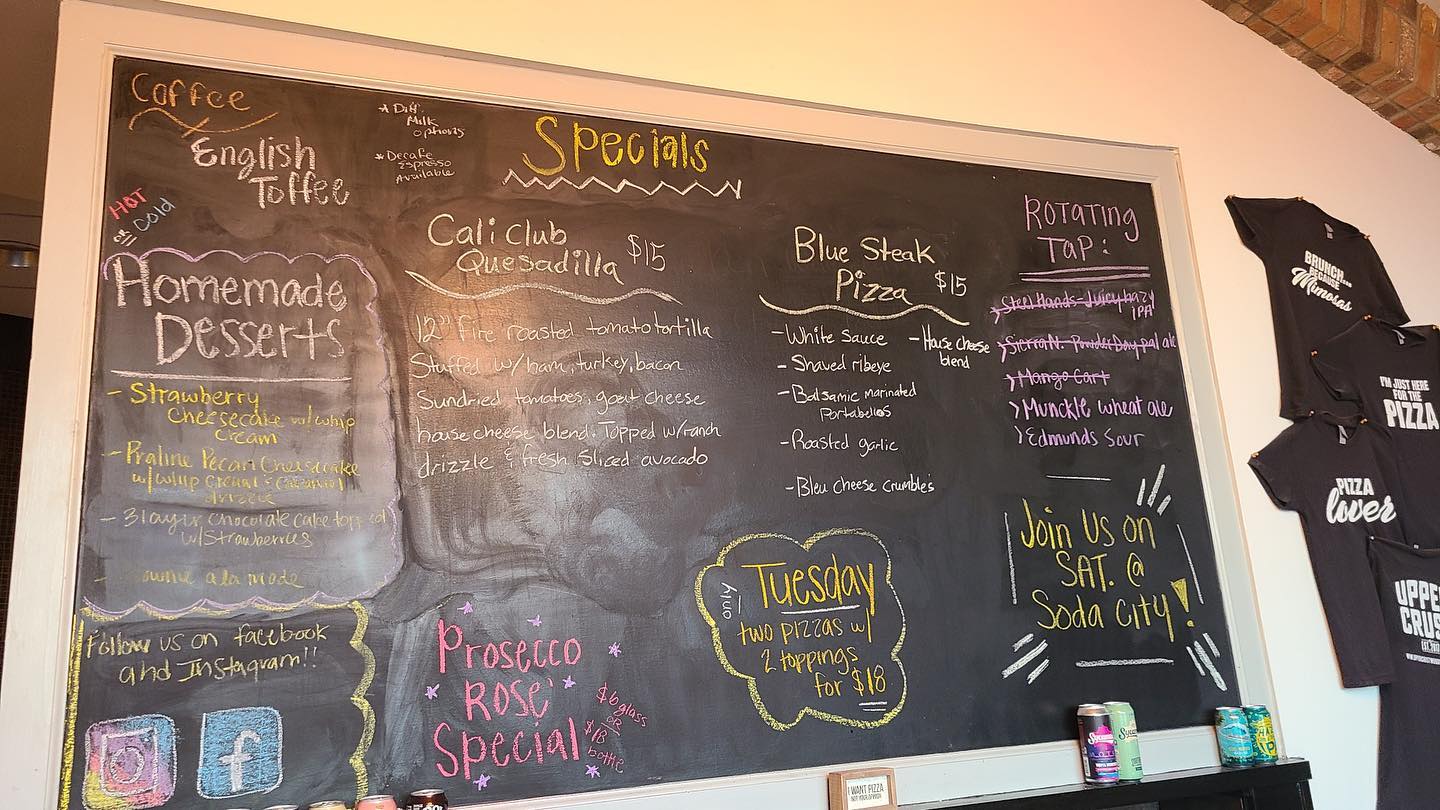 Coffee
English
Toffee
HOT
or
Cold
* Diff.
Milk
options
* Decafe
Espresso
Available
Homemade
Desserts
- Strawberry
Cheesecake w/ whip
Cream
- Praline Pecan Cheesecake
w/ whip cream & caramel
drizzle
- 3 layer chocolate cake topped
w/ Strawberries
- Brownie a la mode
Follow us on facebook
and Instagram!!
f
Specials
Cali Club
Quesadilla $15
12" fire roasted tomato tortilla
Stuffed w/ ham, turkey, bacon
Sundried tomatoes, goat cheese
house cheese blend. Topped w/ ranch
drizzle & fresh sliced avocado
Prosecco
ROSE'
Special
$6 glass
OR
$18
bottle
Blue Steak
Pizza $15
- White sauce
- House cheese
blend
- Shaved ribeye
- Balsamic marinated
Portabellos
- Roasted garlic
- Bleu Cheese Crumbles
only
Tuesday
two pizzas w/
2 toppings
for $18
ROTATING
TAP:
Steel Hands - Juicy hazy
IPA
Sierra N. Powder Day pal ale
Mango Cart
Munckle wheat ale
Edmunds Sour
Join us on
SAT. @
Soda City!
BRUNCH...
BECAUSE
Mimosas
I'M JUST HERE
FOR THE
PIZZA
PIZZA
lover
UPPE
CRUS
I WANT PIZZA